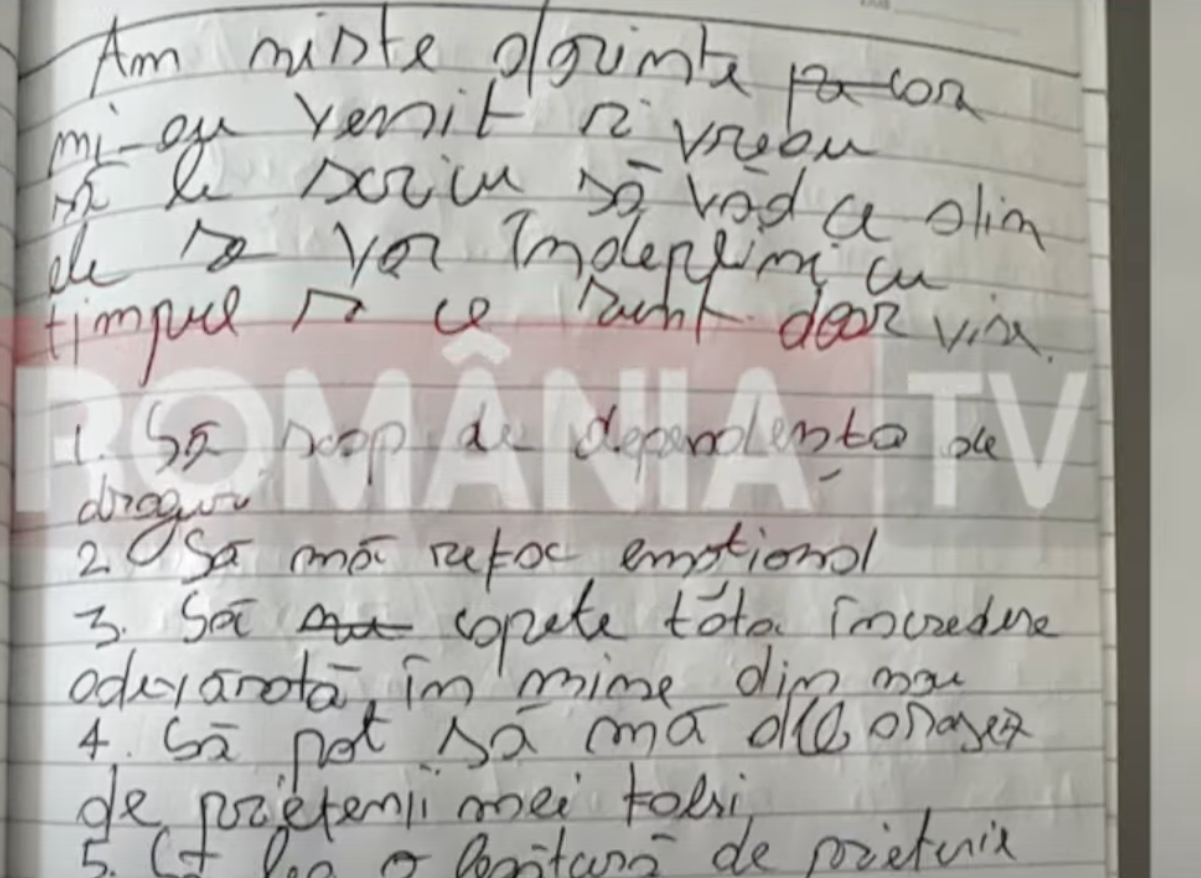 Am niste dorinte care
mi-au venit si vreau
să le scriu să văd ce din
ele se vor îndeplini cu
timpul si ce sunt doar vise.
ROMÂNIA TV
1. Să scap de dependenta de
droguri
2. Să mă refac emotional
3. Să capete tóta încredere
adevărată în mine din nou
4. Să pot să mă
de prietenii mei falsi
5. o legătură de prietenie